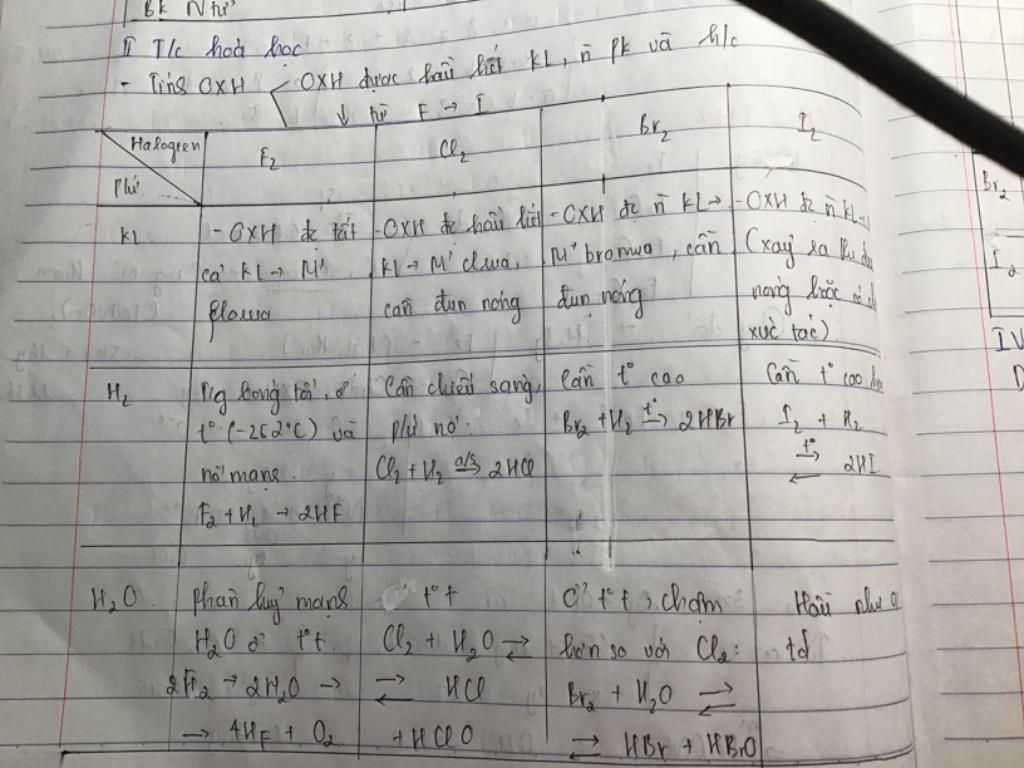 BK Ntử
II T/c hoá học
- Tính OXH
OXH được hầu hết KL, ñ PK và h/c
↓ từ F → I
Halogen
Phứ
F2
Cl2
Br2
I2
KL
- OXH đc tất
cả KL → M'
florua
- OXH đc hầu hết
KL → M' clrua,
cần đun nóng
- OXH đc ñ KL →
M' bromua, cần
đun nóng
- OXH đc ñ KL →
(xảy ra khi
nóng hoặc
xúc tác)
H2
trong tối, ở
t° (-252°C) và
nổ mạng.
F2 + H2 → 2HF
Cần chiếu sáng,
phứ nổ:
Cl2 + H2 a/s→ 2HCl
Cần t° cao
Br2 + H2 t°→ 2HBr
Cần t° cao
I2 + H2
t°⇌ 2HI
H2O
Phân huỷ mạng
H2O ở t°t.
2F2 → 2H2O →
→ 4HF + O2
t°t
Cl2 + H2O ⇌
⇌ HCl
+ HClO
Ở t°t, chậm
hơn so với Cl2:
Br2 + H2O ⇌
⇌ HBr + HBrO
Hầu như
td
Br2
I2
IV